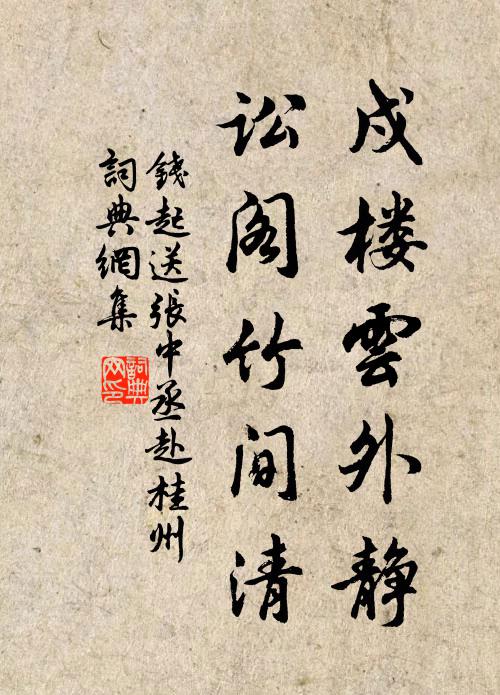 戍楼雲外静
讼阁竹间清
錢起送張中丞赴桂州
詞典網集
詞典网印